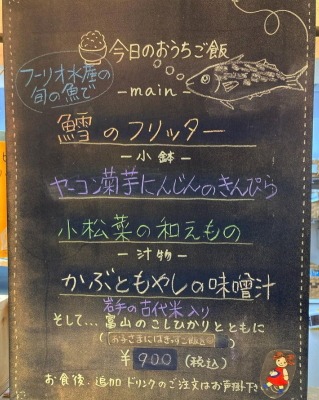 今日のおうちご飯
フーリオ水産の
旬の魚で
-main-
鱈のフリッター
-小鉢-
ヤーコン菊芋にんじんのきんぴら
小松菜の和えもの
-汁物-
かぶともやしの味噌汁
岩手の古代米入り
そして...富山のこしひかりとともに
(お子さまにはきすご飯)
¥900(税込)
お食後、追加ドリンクのご注文はお声掛け下さい